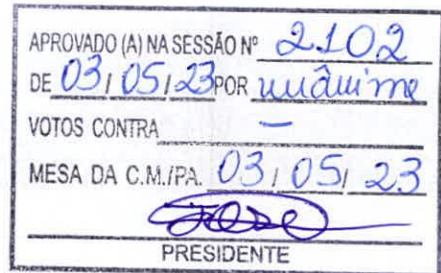 APROVADO (A) NA SESSÃO Nº 2.102
DE 03 / 05 / 23 POR unânime
VOTOS CONTRA —
MESA DA C.M./PA. 03 / 05 / 23
PRESIDENTE